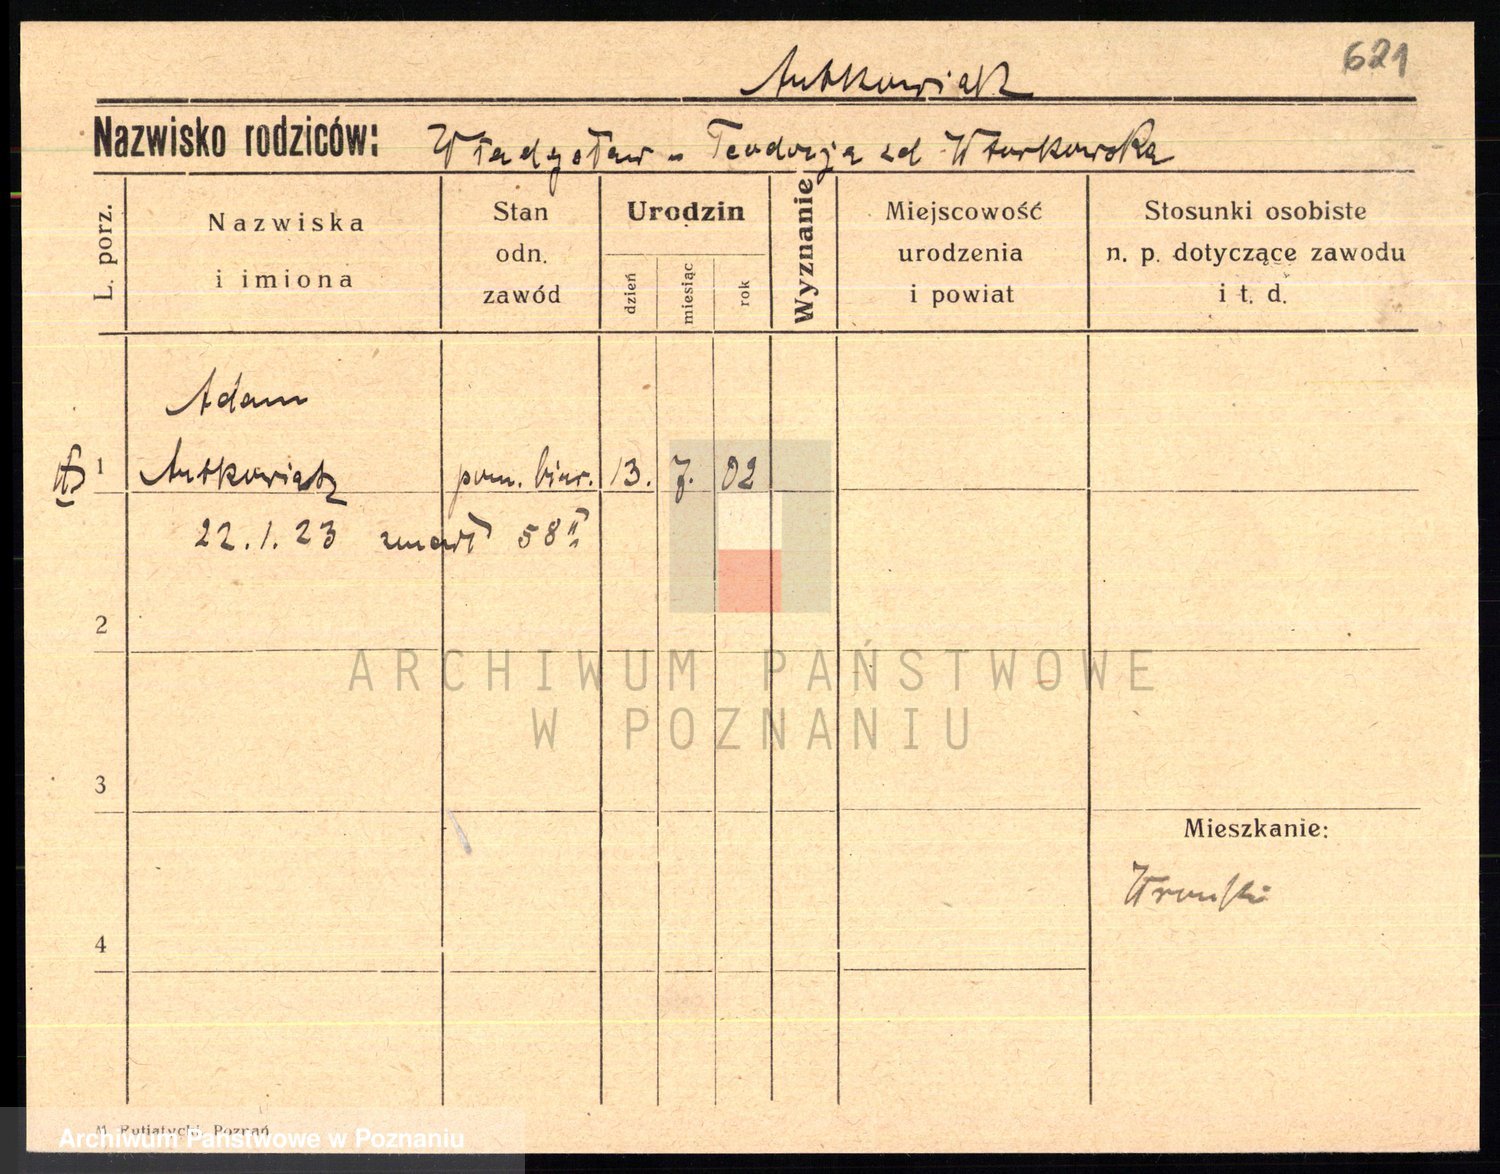 621
Antkowiak
Nazwisko rodziców: Władysław - Teodozja zd Wtorkowska
L. porz.
Nazwiska i imiona
Stan odn. zawód
Urodzin
dzień
miesiąc
rok
Wyznanie
Miejscowość urodzenia i powiat
Stosunki osobiste n. p. dotyczące zawodu i t. d.
Adam
1 Antkowiak pom. biur. 13. 7. 02
22.1.23 zmarł 58
2
ARCHIWUM PAŃSTWOWE
W POZNANIU
3
Mieszkanie:
4
M. Putiatycki, Poznań
Archiwum Państwowe w Poznaniu